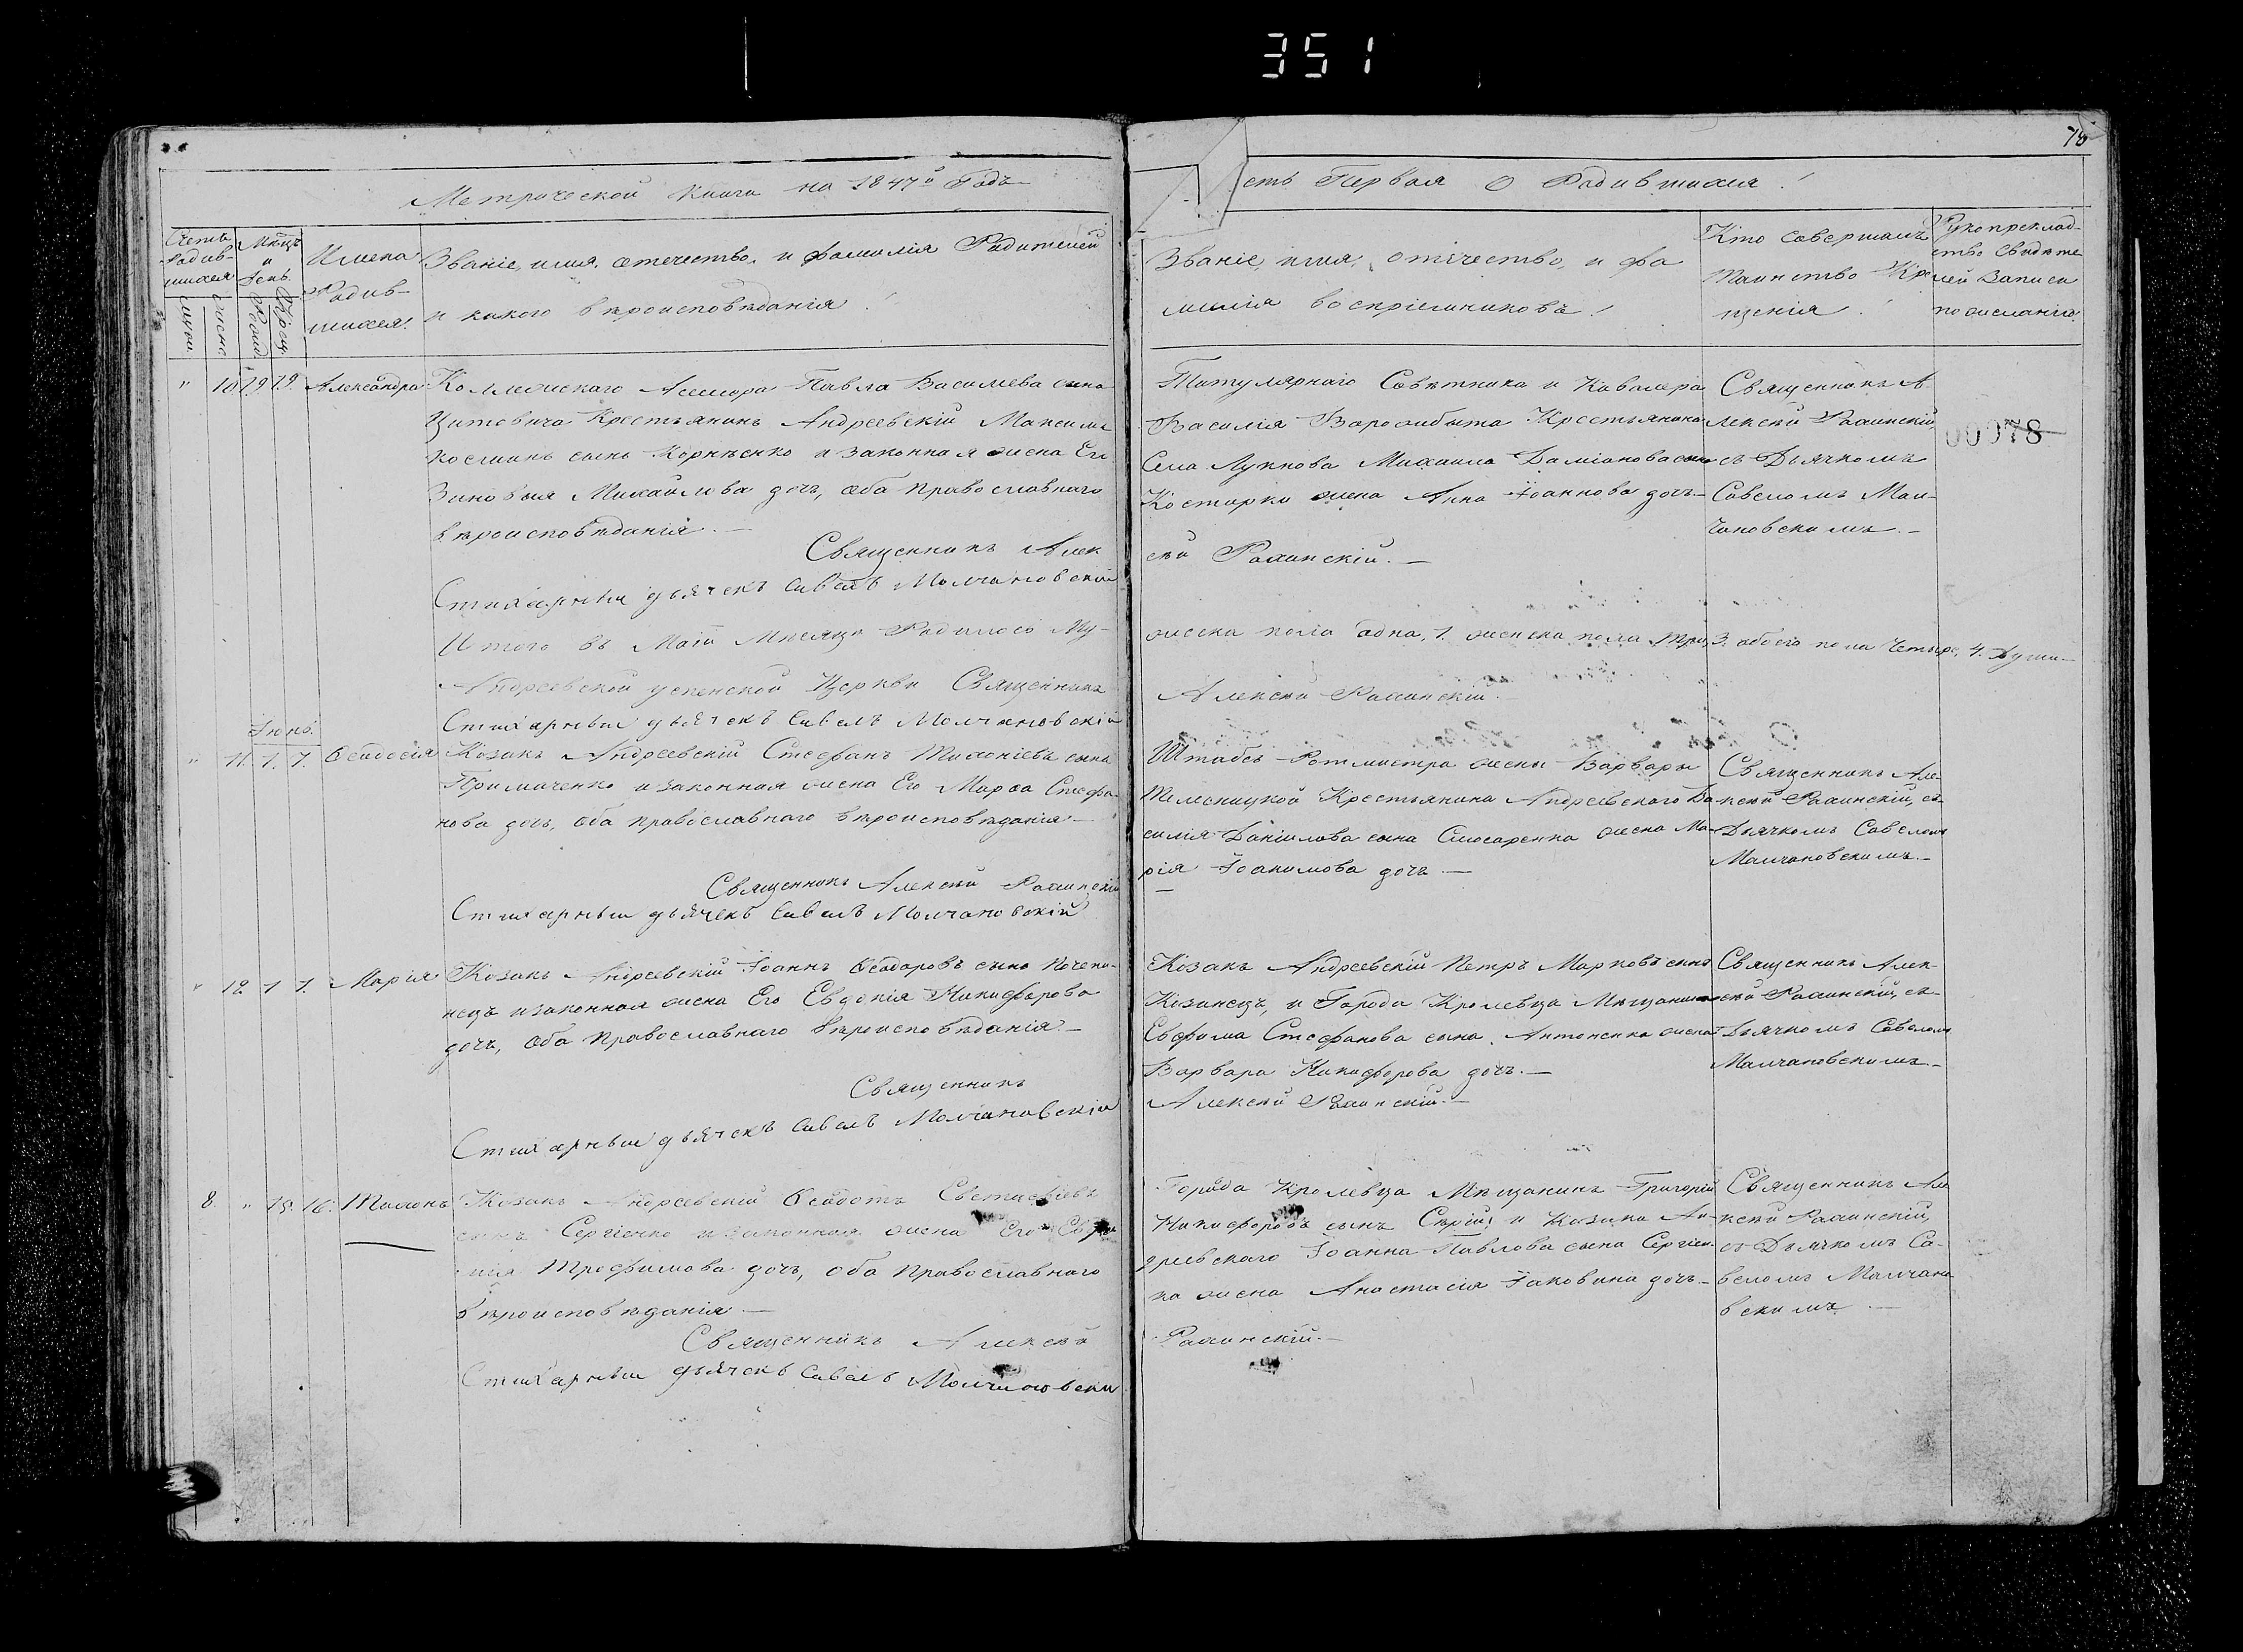 351
78
Метрической Книги на 1847й Годъ
сть Первая О Родившихся
Счетъ Родившихся
муж.
женс.
Мѣцъ и день
Рожд.
Крещ.
Имена Родившихся.
Званіе, имя, отечество, и фамилія Родителей
и какого вѣроисповѣданія
Званіе, имя, отечество, и фа
милія воспріемниковъ
Кто совершалъ
Таинство Кре
щенія
Рукоприклад-
ство свидѣте
лей записи
по желанію
" 10 19 19. Александра
Коллежскаго Асессора Павла Васильева сына
Цитовича Крестьянинъ Андреевскій Максимъ
Косминъ сынъ Корнѣенко и законная жена Его
Зиновія Михайлова дочь, оба православнаго
вѣроисповѣданія.—
Священникъ Алек
Стихарный дьячекъ Савелъ Молчановскій
Титулярнаго Совѣтника и Кавалера
Василія Ворожбыта Крестьянина
Села Лукнова Михаила Даміанова сына
Костирки жена Анна Іоаннова дочь—
сѣй Рахинскій.—
Священникъ А
лексѣй Рахинскій
съ Дьячкомъ
Савеломъ Мол-
чановскимъ.—
00078
Итого въ Маіи Мѣсяцѣ Родилось Му-
жеска пола одна, 1. женска пола три, 3. обоего пола Четыре, 4. души—
Андреевской успенской Церкви Священникъ
Алексѣй Рахинскій.
Стихарный дьячекъ Савелъ Молчановскій
Іюнь.
" 11. 1. 1. Ѳеодосія
Козакъ Андреевскій Стефанъ Тихоніевъ сынъ
Примаченко и законная жена Его Марѳа Стефа-
нова дочь, оба православнаго вѣроисповѣданія—
Священникъ Алексѣй Рахинскій
Стихарный дьячекъ Савелъ Молчановскій
Штабсъ-Ротмистра жены Варвары
Крестьянина Андреевскаго Ва
силія Даніилова сына Слюсаренка жена Ма-
рія Іоакимова дочь—
Священникъ Але-
ксѣй Рахинскій, съ
Дьячкомъ Савеломъ
Молчановскимъ.—
" 12. 1 1. Марія
Козакъ Андреевскій Іоаннъ Ѳеодоровъ сынъ Почепи-
нецъ и законная жена Его Евдокія Никифорова
дочь, оба православнаго вѣроисповѣданія—
Священникъ
Стихарный дьячекъ Савелъ Молчановскій
Козакъ Андреевскій Петръ Марковъ сынъ
Козинецъ, и Города Кролевца Мѣщанина
Евфима Стефанова сына Антоненка жена
Варвара Никифорова дочь.—
Алексѣй Рахинскій.—
Священникъ Алек-
сѣй Рахинскій, съ
Дьячкомъ Савеломъ
Молчановскимъ—
8. " 15. 16. Тихонъ
Козакъ Андреевскій Ѳеодотъ Евстафіевъ
сынъ Сергіенко и законная жена Его
Трофимова дочь, оба православнаго
вѣроисповѣданія—
Священникъ Алексѣй
Стихарный дьячекъ Савелъ Молчановскій
Города Кролевца Мѣщанинъ Григорій
Никифоровъ сынъ Сѣрій, и Козака Ан-
дреевскаго Іоанна Павлова сына Сергіен-
ка жена Анастасія Іаковина дочь—
Рахинскій.—
Священникъ Але
ксѣй Рахинскій,
съ Дьячкомъ Са-
веломъ Молчано
вскимъ.—